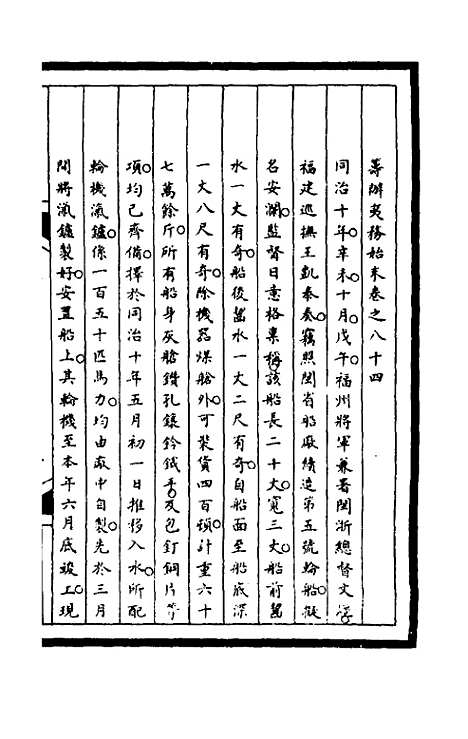 籌辦夷務始末卷之八十四
同治十年辛未十月戊午福州將軍兼署閩浙總督文
福建巡撫王凱泰奏竊照閩省船廠續造第五號輪船擬
名安瀾監督日意格稟稱該船長二十丈寬三丈船前喫
水一丈有奇船後喫水一丈二尺有奇自船面至船底深
一丈八尺有奇除機器煤艙外可裝貨四百頓計重六十
七萬餘斤所有船身灰艙鑽孔鑲鈐鐵及包釘銅片等
項均已齊備擇於同治十年五月初一日推移入水所配
輪機滊爐係一百五十匹馬力均由廠中自製先於三月
間將滊爐製好安置船上其輪機至本年六月底竣工現